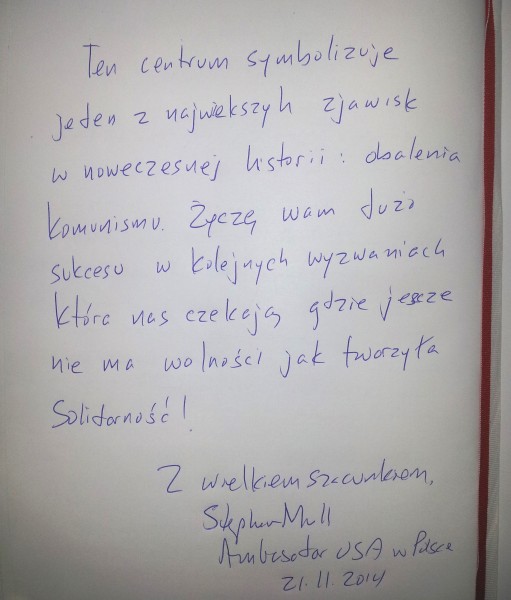 Ten centrum symbolizuje
jeden z największyh zjawisk
w noweczesnej historii: obalenia
komunismu. Życzę wam dużo
sukcesu w kolejnych wyzwaniach
która nas czekają gdzie jescze
nie ma wolności jak tworzyła
Solidarność!
Z wielkiem szacunkiem,
Stephen Mull
Ambasador USA w Polsce
21.11.2014